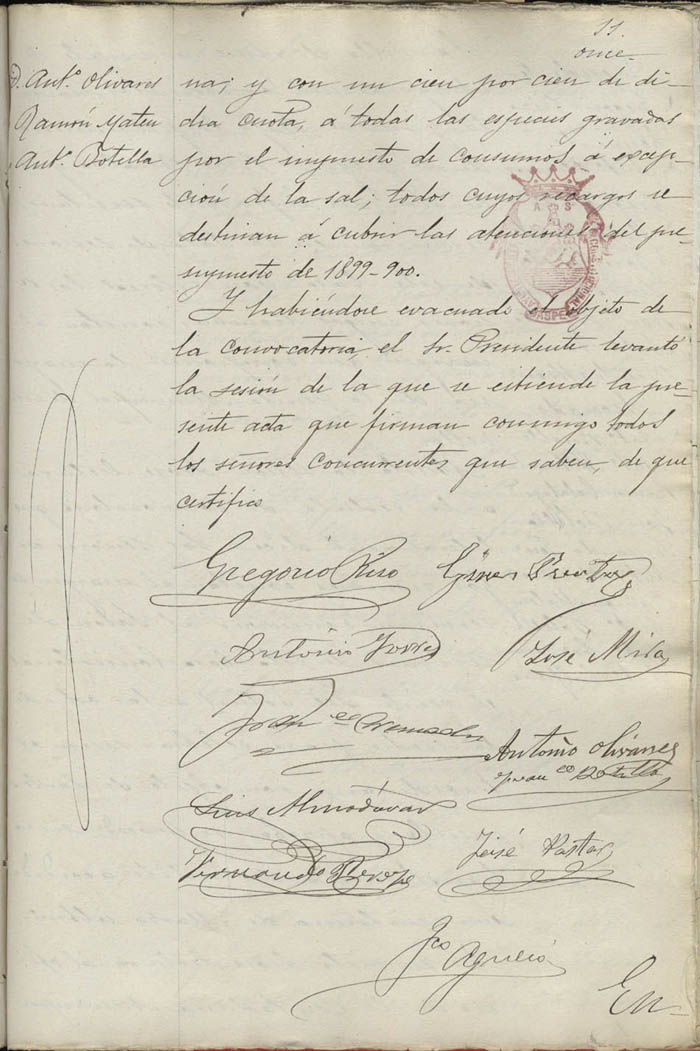 11
once
D. Antº Olivares
Ramón Mateu
Antº Botella
na; y con un cien por cien de di-
cha cuota, á todas las especies gravadas
por el impuesto de consumos, á excep-
ción de la sal; todos cuyos recargos se
destinan á cubrir las atenciones del pre-
supuesto de 1899-900.
Y habiéndose evacuado el objeto de
la convocatoria el Sr. Presidente levantó
la sesión de la que se extiende la pre-
sente acta que firman conmigo todos
los señores concurrentes que saben, de que
certifico
Gregorio Rico
Ginés
Antonio
José Mira
Antonio Olivares
Franco Botella
Luis Almodóvar
José Pastor
Fernando
Fco
En-